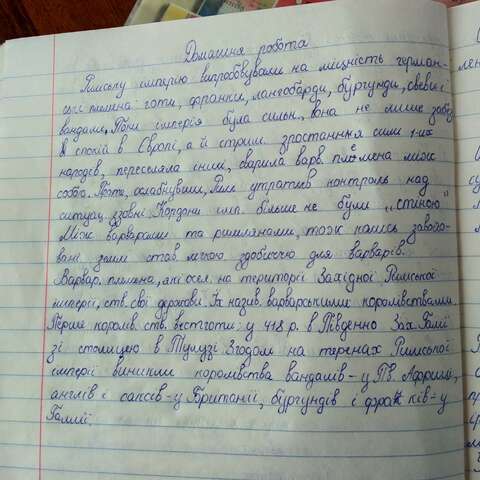 Домашня робота
Римську імперію випробовували на міцність герман-
ські племена готи, франки, лангобарди, бургунди, свеви і
вандали. Поки імперія була сильн., вона не лише забез
в спокій в Європі, а й стрим. зростання сили і-их
народів, переселяла їхніх, сварила варв. племена між
собою. Потім, ослабнувши, Рим утратив контроль над
ситуац. ззовні Кордони імп. більше не були „стіною"
Між варварами та римлянами, тож колись завойо-
вані землі став. легкою здобиччю для варварів.
Варвар. племена, які осел. на території Західної Римської
імперії, ств. свої держави. Їх назив. варварськими королівствами.
Перше королів. ств. вестготи: у 418 р. в Південно Зах. Галії
зі столицею в Тулузі Згодом на теренах Римської
імперії виникли королівства вандалів - у Пв. Африці,
англів і саксів - у Британії, бургундів і франків - у
Галлії.